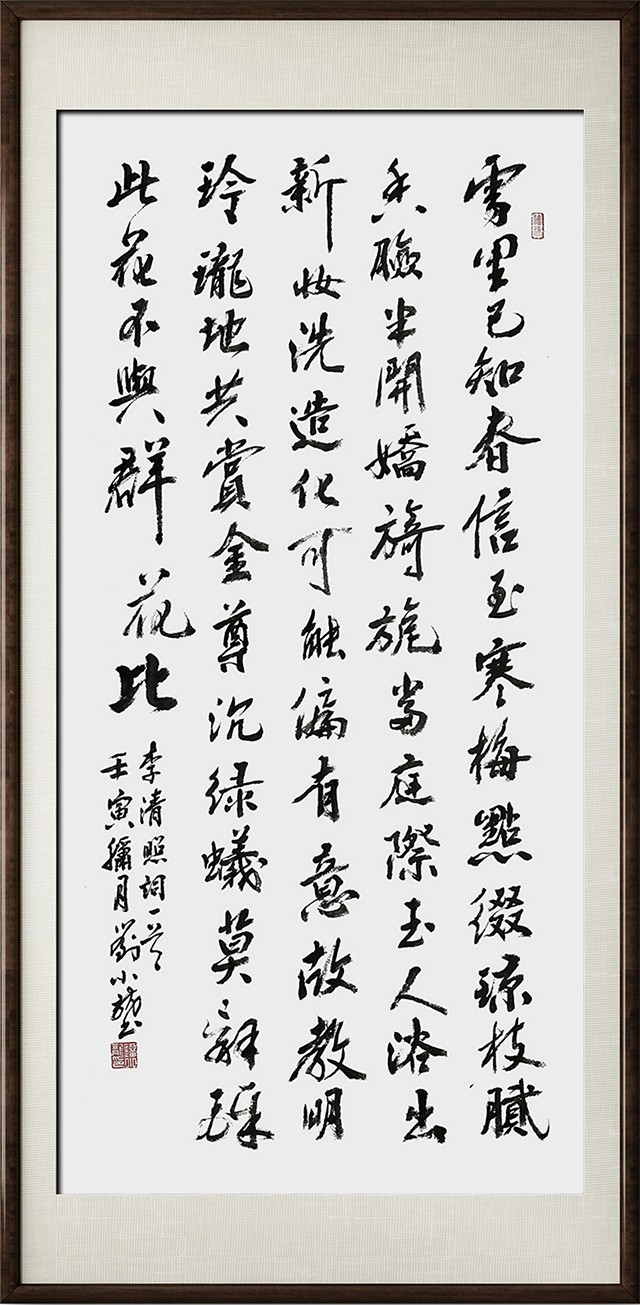 雪里已知春信至寒梅點缀琼枝膩
香臉半開嬌旖旎當庭際玉人浴出
新妆洗造化可能偏有意故教明
玲瓏地共賞金尊沉绿蟻莫辭醉
此花不與群花比
李清照詞一首
壬寅月劉小